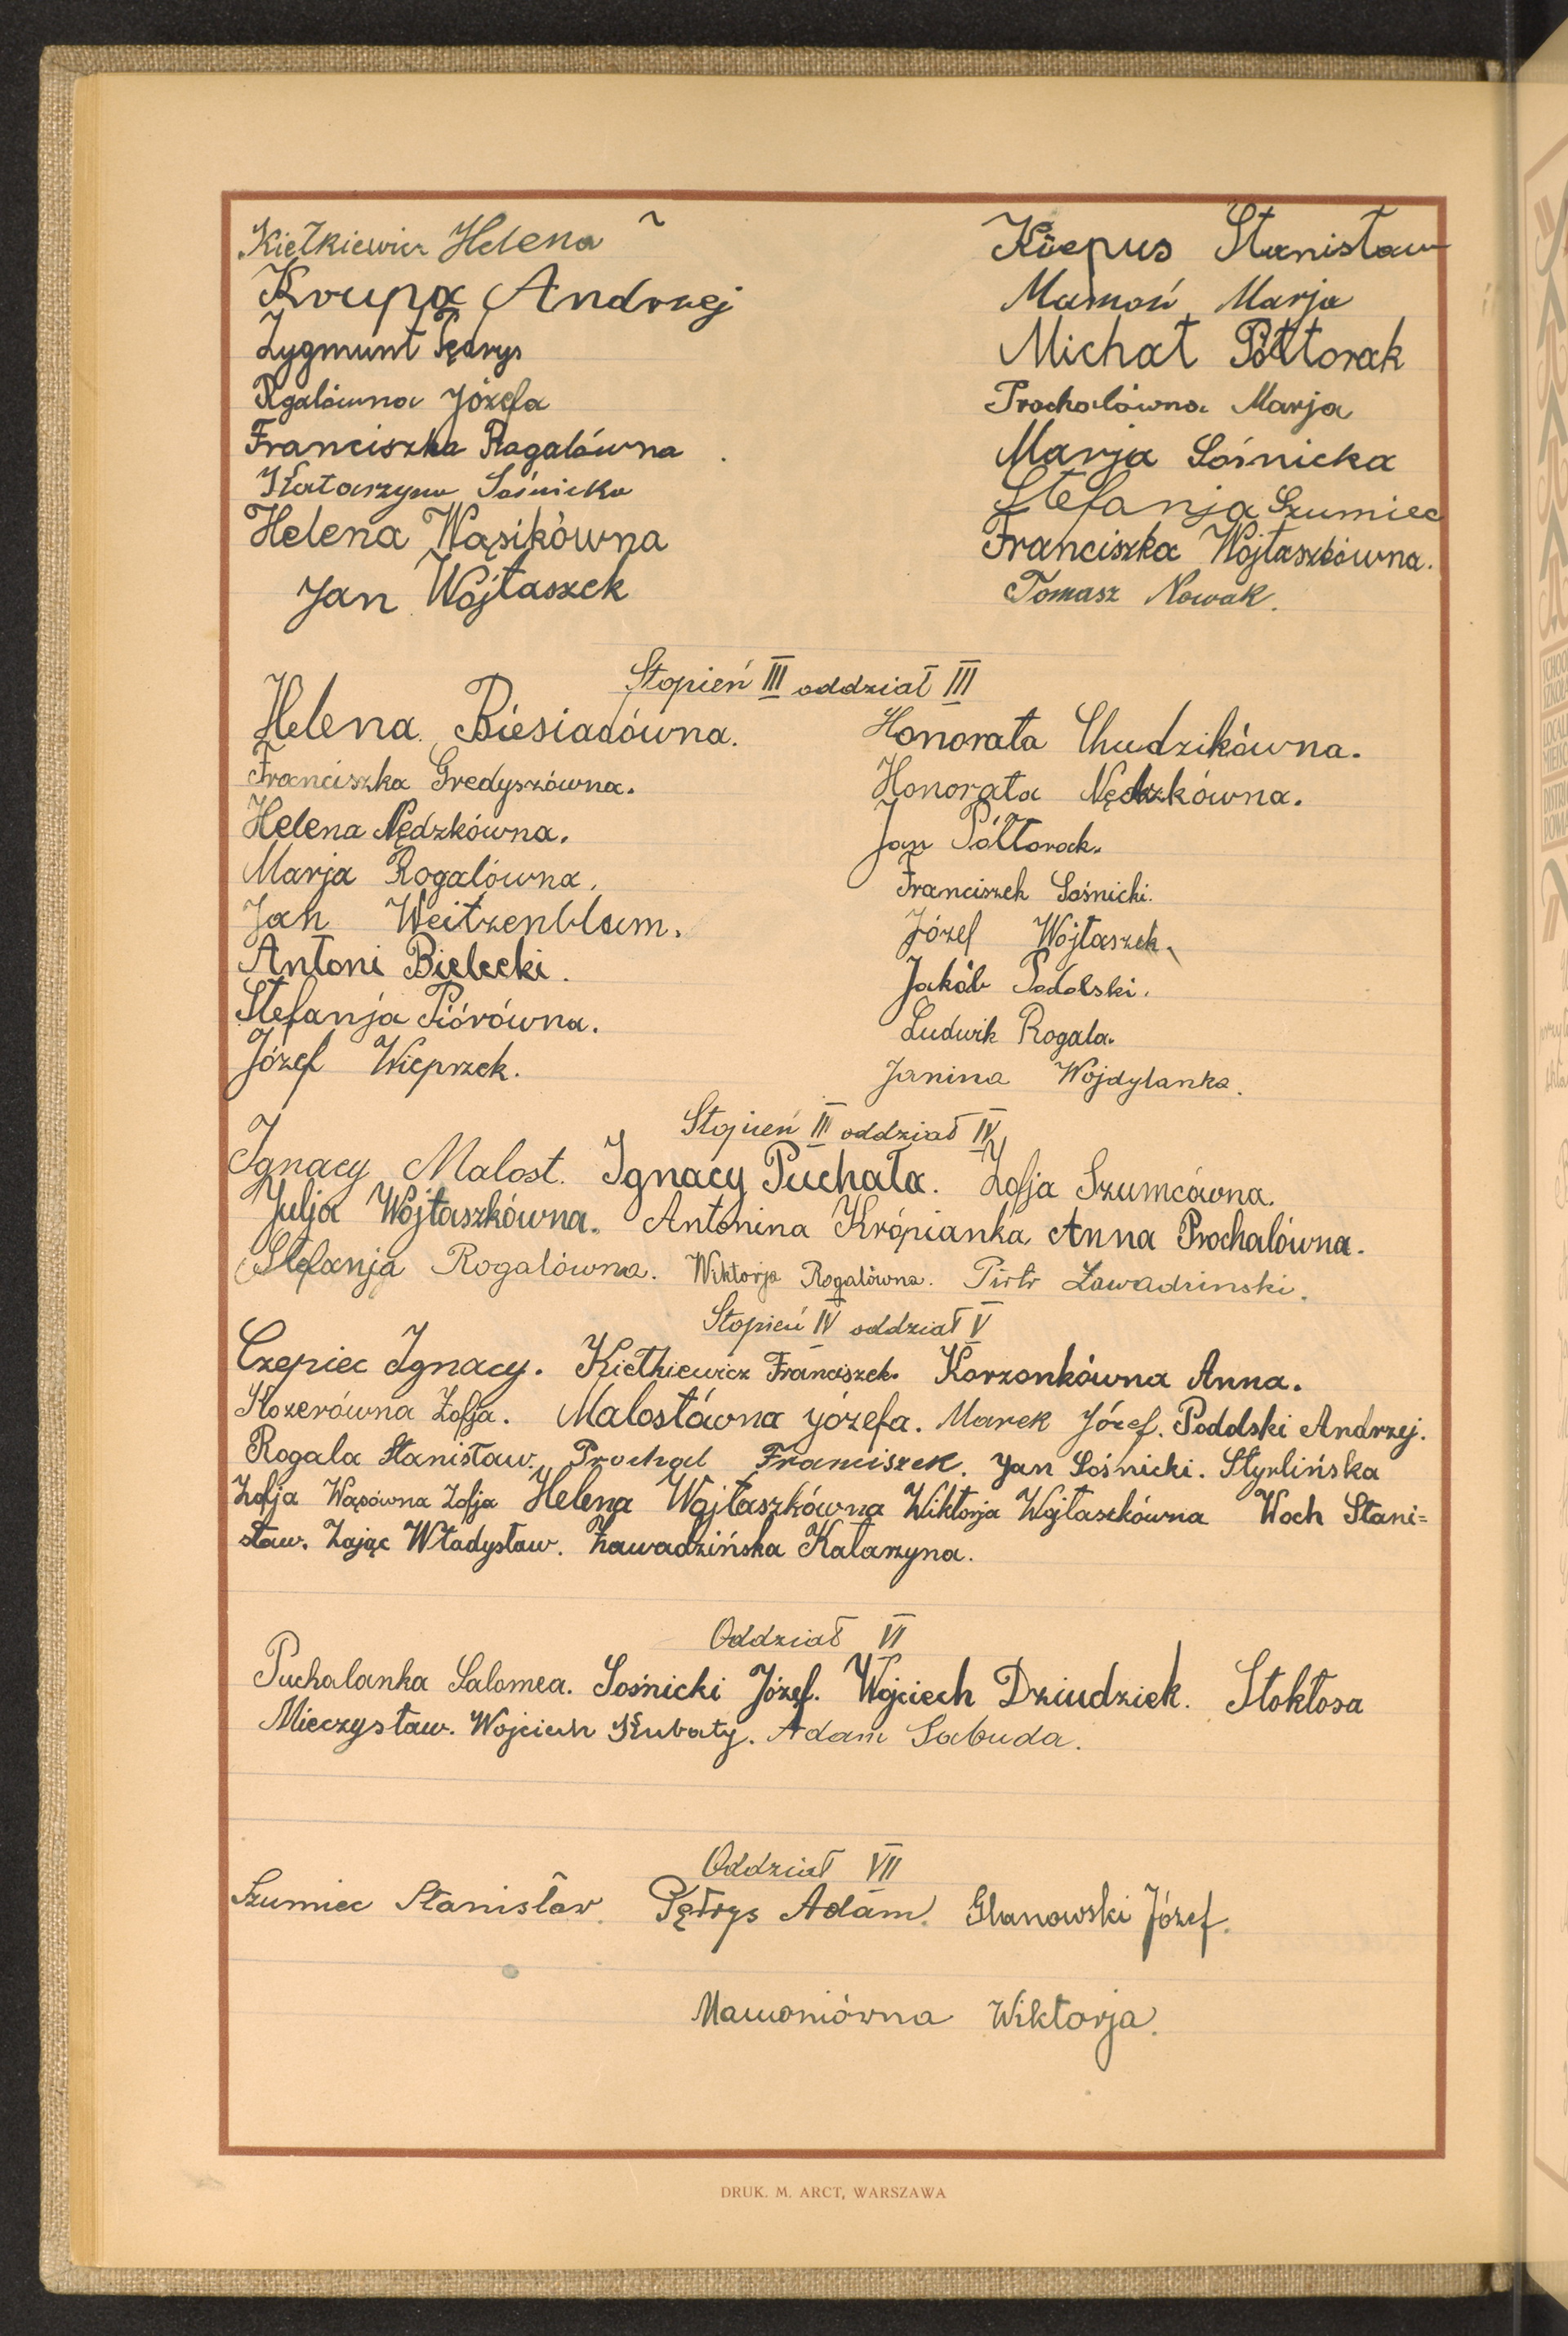 Kiełkiewicz Helena
Krupa Andrzej
Zygmunt Pędrys
Rgalówna Józefa
Franciszka Rogalówna
Katarzyna Sośnicka
Helena Wąsikówna
Jan Wojtaszek
Stanisław
Mamoń Marja
Michał Półtorak
Prochalówna Marja
Marja Sośnicka
Stefanja Szumiec
Franciszka Wojtaszkówna.
Tomasz Nowak.
Stopień III oddział III
Helena Biesiadówna.
Franciszka Gredyszówna.
Helena Nędzkówna.
Marja Rogalówna.
Jan Weitzenblum.
Antoni Bielecki.
Stefanja Piórówna.
Józef Wieprzek.
Honorata Chudzikówna.
Honorata Nędzkówna.
Jan Półtorak.
Franciszek Sośnicki.
Józef Wojtaszek.
Jakób Podolski.
Ludwik Rogala.
Janina Wojdylanka.
Stopień III oddział IV
Ignacy Malost. Ignacy Puchała. Zofja Szumcówna.
Julja Wojtaszkówna. Antonina Krópianka Anna Prochalówna.
Stefanja Rogalówna. Wiktorja Rogalówna. Piotr Zawadzinski.
Stopień IV oddział V
Czepiec Ignacy. Kiełkiewicz Franciszek. Korzonkówna Anna.
Kozerówna Zofja. Malostówna Józefa. Marek Józef. Podolski Andrzej.
Rogala Stanisław. Prochal Franciszek. Jan Sośnicki. Styrlińska
Zofja Wąsówna Zofja Helena Wojtaszkówna Wiktorja Wojtaszkówna Woch Stani=
sław. Zając Władysław. Zawadzińska Katarzyna.
Oddział VI
Puchalanka Salomea. Sośnicki Józef. Wojciech Dziudziek. Stokłosa
Mieczysław. Wojciech Kubaty. Adam Sabuda.
Oddział VII
Szumiec Stanisław. Pętrys Adam. Glanowski Józef.
Mamoniówna Wiktorja.
DRUK. M. ARCT, WARSZAWA